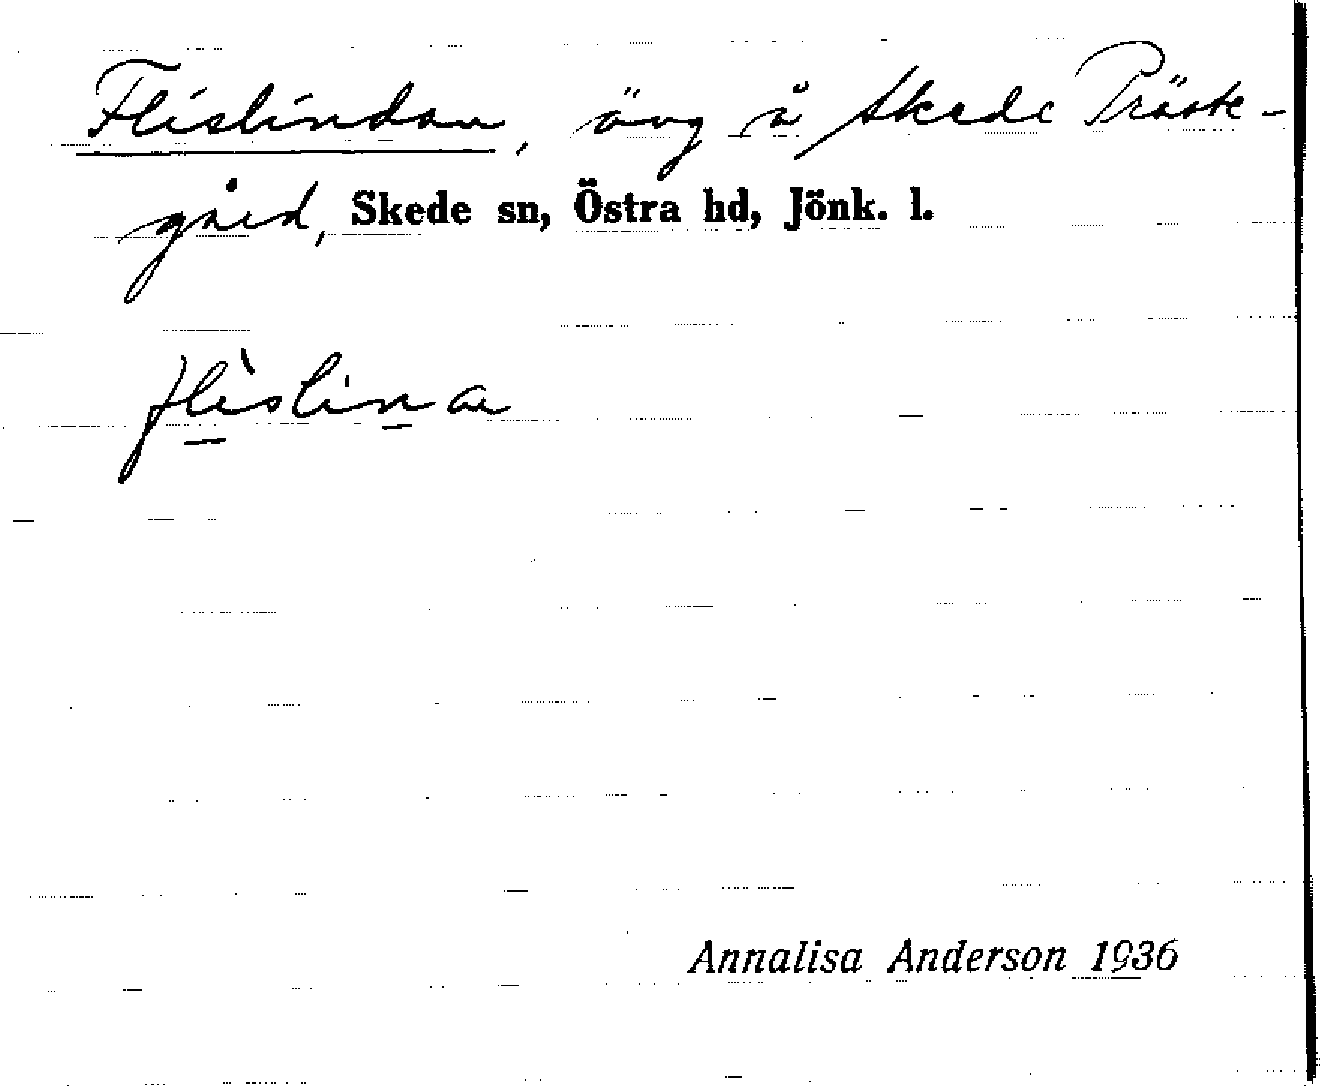 Flislindan, äng å Skede Präste-
gård, Skede sn, Östra hd, Jönk. l.
flìslina
Annalisa Anderson 1936